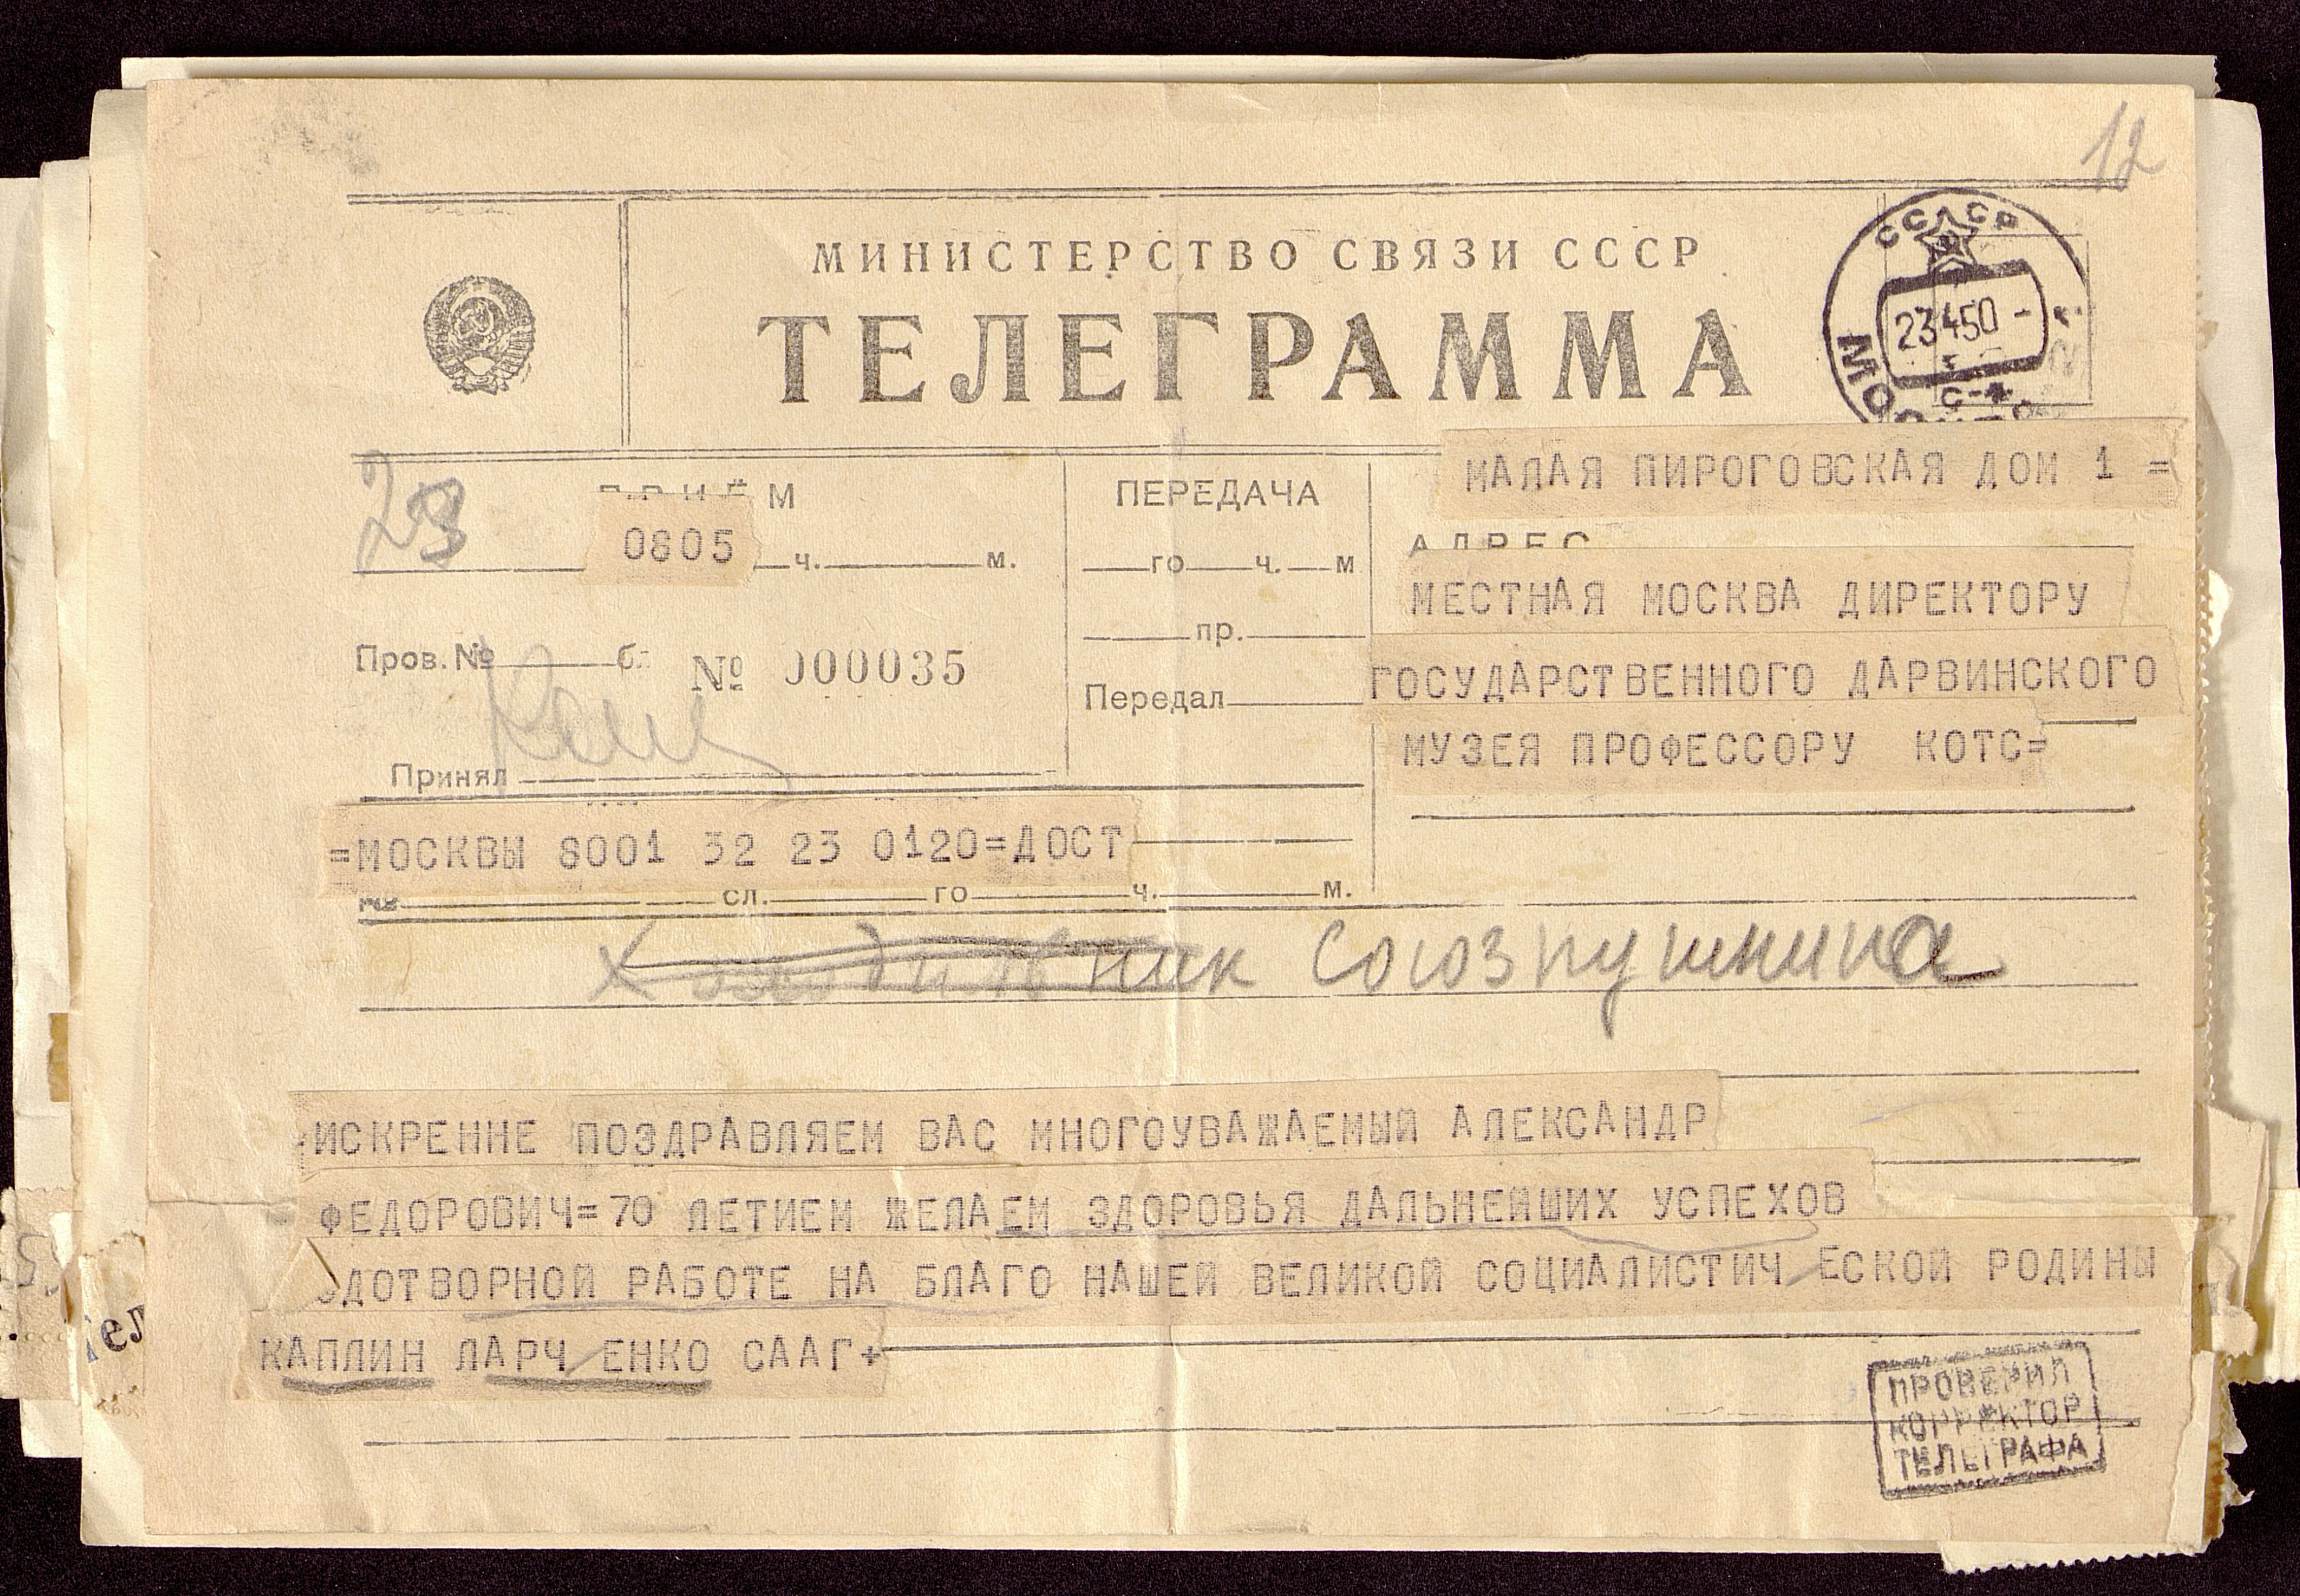 12
МИНИСТЕРСТВО СВЯЗИ СССР
ТЕЛЕГРАММА
СССР
23450-
МОСКВА
С-4
МАЛАЯ ПИРОГОВСКАЯ ДОМ 1 =
АДРЕС
МЕСТНАЯ МОСКВА ДИРЕКТОРУ
ГОСУДАРСТВЕННОГО ДАРВИНСКОГО
МУЗЕЯ ПРОФЕССОРУ КОТС=
23
ПРИЁМ
0805
ч. м.
Пров. № бл
№ 000035
Принял
ПЕРЕДАЧА
го ч. м
пр.
Передал
=МОСКВЫ 8001 32 23 0120=ДОСТ
№ сл. го ч. м.
Холодильник Союзпушнина
ИСКРЕННЕ ПОЗДРАВЛЯЕМ ВАС МНОГОУВАЖАЕМЫЙ АЛЕКСАНДР
ФЕДОРОВИЧ=70 ЛЕТИЕМ ЖЕЛАЕМ ЗДОРОВЬЯ ДАЛЬНЕЙШИХ УСПЕХОВ
ОДОТВОРНОЙ РАБОТЕ НА БЛАГО НАШЕЙ ВЕЛИКОЙ СОЦИАЛИСТИЧ ЕСКОЙ РОДИНЫ
КАПЛИН ЛАРЧ ЕНКО СААГ+
ПРОВЕРИЛ
КОРРЕКТОР
ТЕЛЕГРАФА